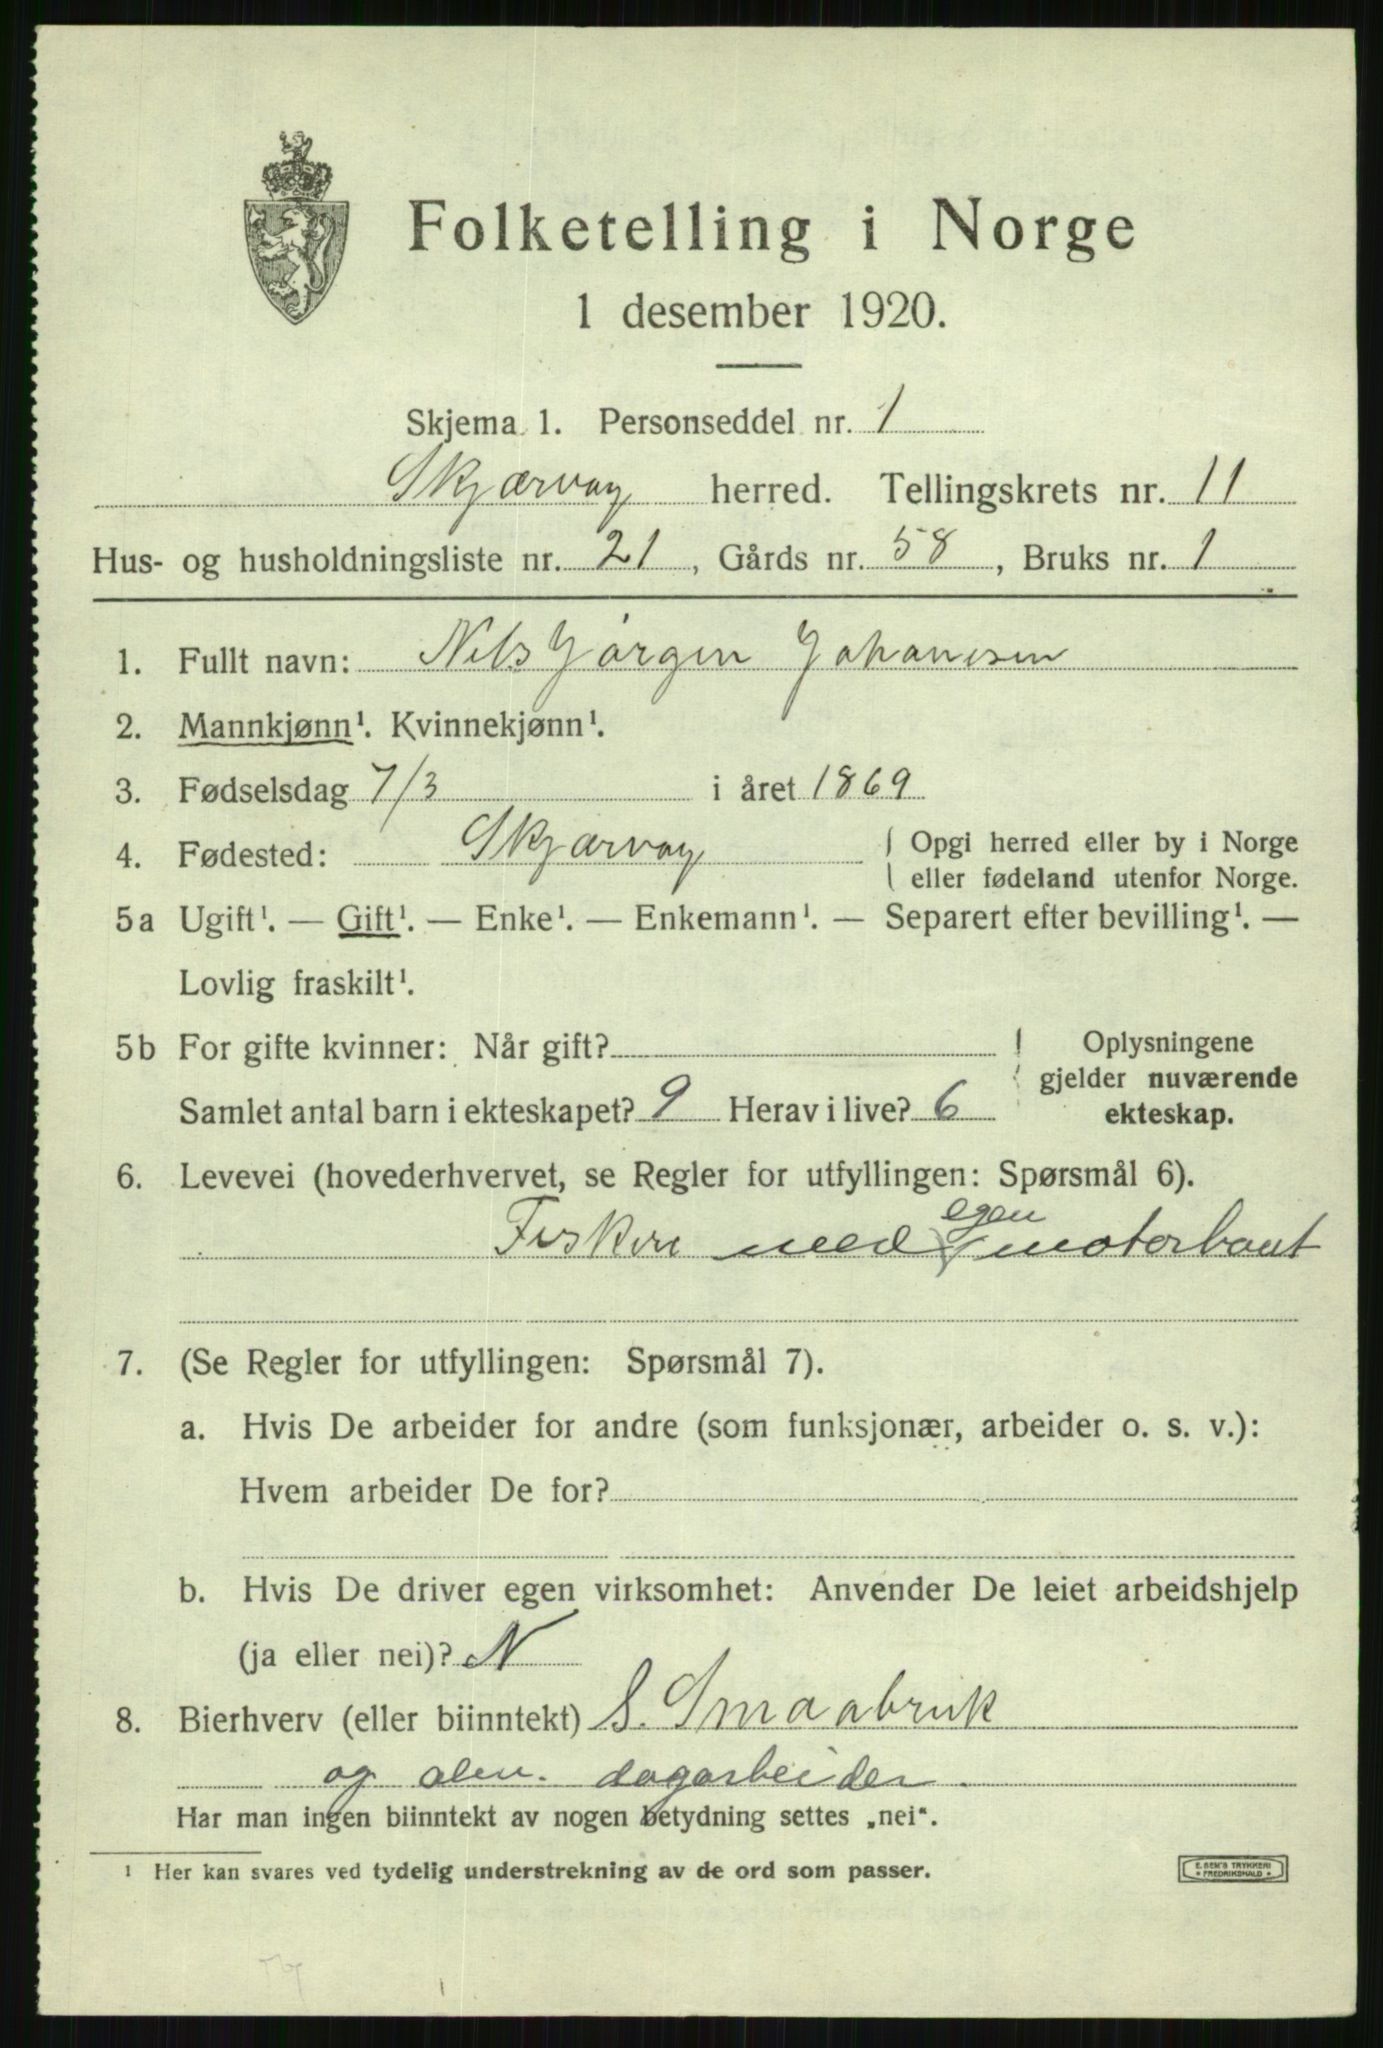 Folketelling i Norge
1 desember 1920.
Skjema 1. Personseddel nr. 1
Skjærvøy herred. Tellingskrets nr. 11
Hus- og husholdningsliste nr. 21, Gårds nr. 58, Bruks nr. 1
1. Fullt navn: Nils Jørgen Johansen
2. Mannkjønn¹. Kvinnekjønn¹.
3. Fødselsdag 7/3 i året 1869
4. Fødested: Skjærvøy { Opgi herred eller by i Norge
eller fødeland utenfor Norge.
5a Ugift¹. — Gift¹. — Enke¹. — Enkemann¹. — Separert efter bevilling¹. —
Lovlig fraskilt¹.
5b For gifte kvinner: Når gift?
Samlet antal barn i ekteskapet? 9 Herav i live? 6
Oplysningene
gjelder nuværende
ekteskap.
6. Levevei (hovederhvervet, se Regler for utfyllingen: Spørsmål 6).
egen
Fisker med motorbaat
7. (Se Regler for utfyllingen: Spørsmål 7).
a. Hvis De arbeider for andre (som funksjonær, arbeider o. s. v.):
Hvem arbeider De for?
b. Hvis De driver egen virksomhet: Anvender De leiet arbeidshjelp
(ja eller nei)? N
8. Bierhverv (eller biinntekt) S. Smaabruk
og alm. dagarbeider.
Har man ingen biinntekt av nogen betydning settes „nei“.
¹ Her kan svares ved tydelig understrekning av de ord som passer.
E. SEM'S TRYKKERI
FREDRIKSHALD